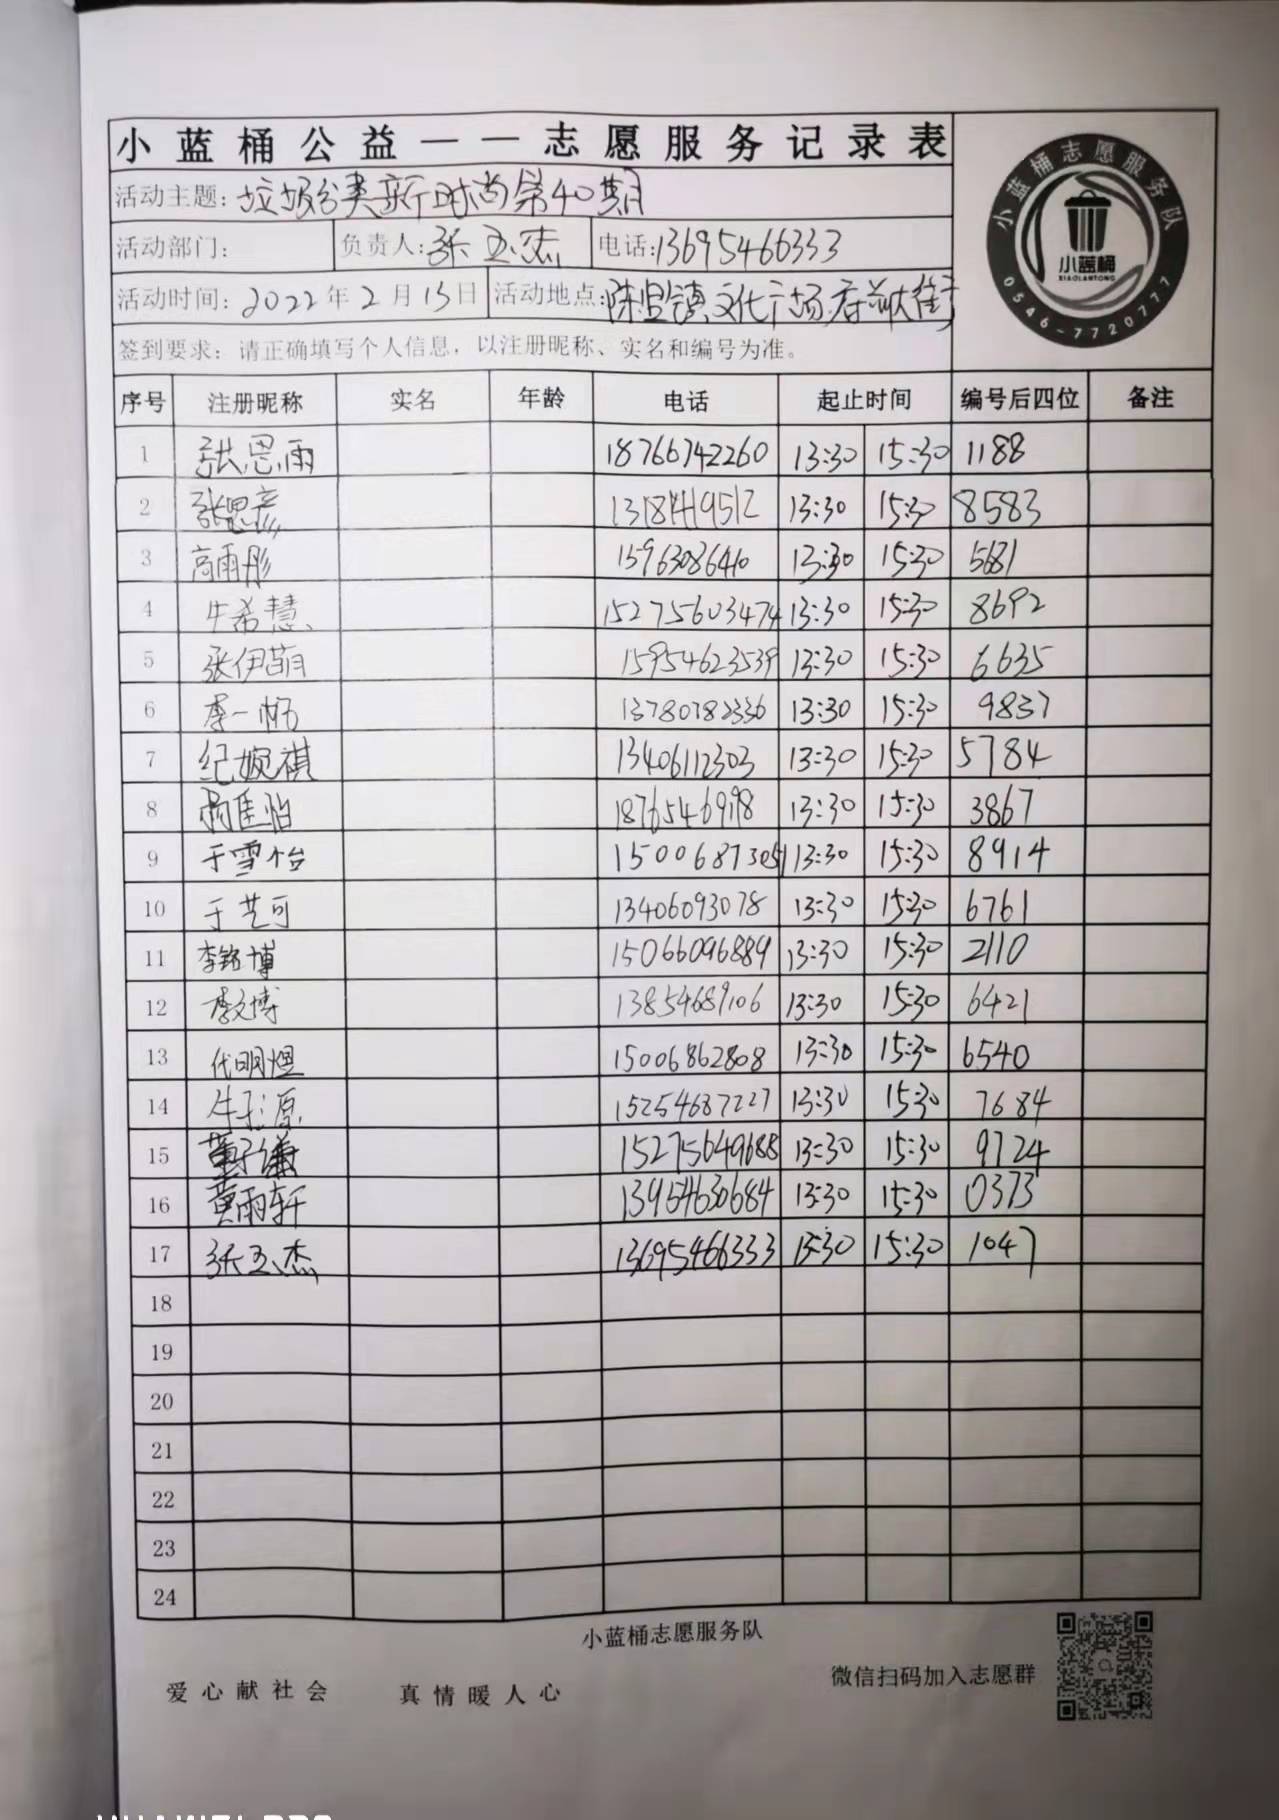 小蓝桶公益——志愿服务记录表
小蓝桶志愿服务队
小蓝桶
XIAOLANTONG
0546-7720777
活动主题: 垃圾分类新时尚第40期
活动部门: 负责人: 张玉杰 电话: 13695466333
活动时间: 2022年2月15日 活动地点: 陈官镇文化广场
签到要求: 请正确填写个人信息, 以注册昵称、实名和编号为准。
序号 注册昵称 实名 年龄 电话 起止时间 编号后四位 备注
1 张恩雨 18766742260 13:30 15:30 1188
2 张思彦 13:30 15:30 8583
3 高雨彤 15963086410 13:30 15:30 5681
4 牛希慧 15275603474 13:30 15:30 8692
5 张伊萌 15954623539 13:30 15:30 6635
6 李一畅 13780782336 13:30 15:30 9837
7 纪婉祺 13406112303 13:30 15:30 5784
8 13:30 15:30 3867
9 于雪怡 15006873051 13:30 15:30 8914
10 于艺可 13406093078 13:30 15:30 6761
11 李铭博 15066096889 13:30 15:30 2110
12 李文博 13854689106 13:30 15:30 6421
13 代明煜 15006862808 13:30 15:30 6540
14 15254687227 13:30 15:30 7684
15 董子谦 15275649688 13:30 15:30 9724
16 黄雨轩 13954630684 13:30 15:30 0373
17 张玉杰 13695466333 13:30 15:30 1047
18
19
20
21
22
23
24
小蓝桶志愿服务队
爱心献社会 真情暖人心 微信扫码加入志愿群